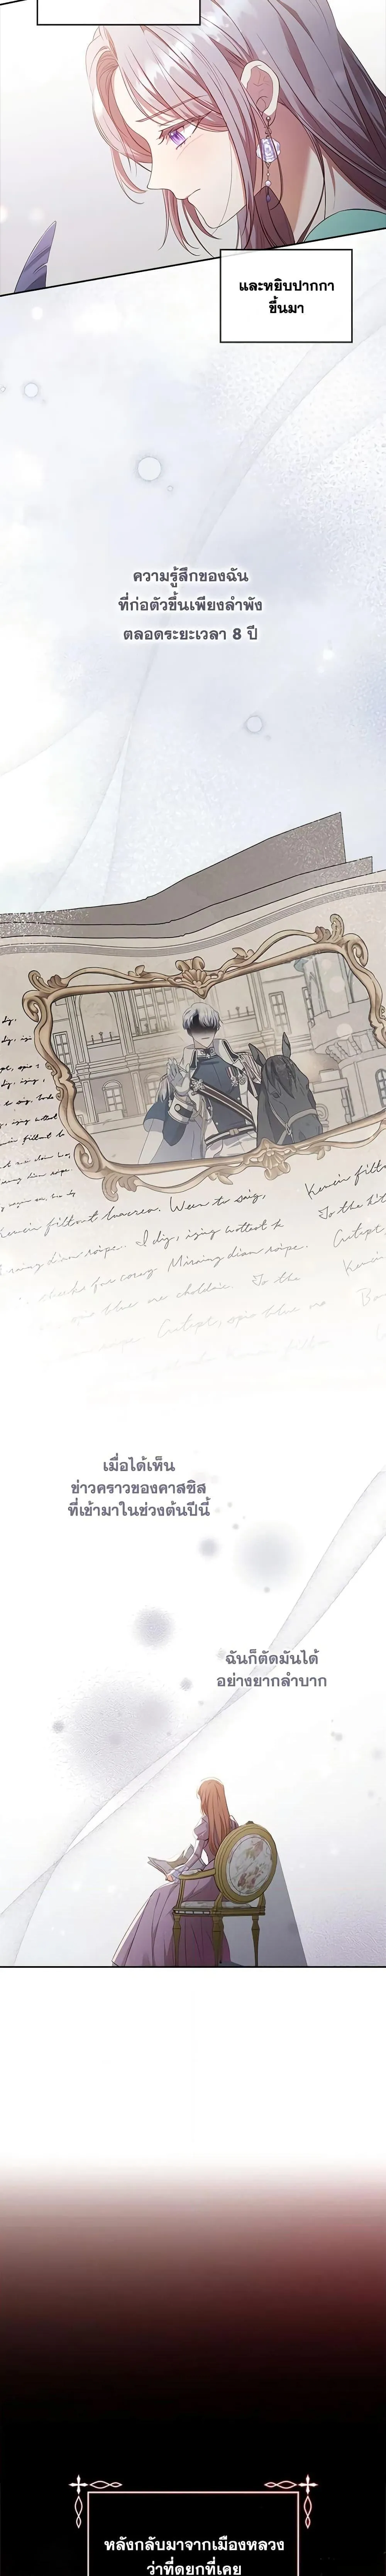 และหยิบปากกา
ขึ้นมา
ความรู้สึกของฉัน
ที่ก่อตัวขึ้นเพียงลำพัง
ตลอดระยะเวลา 8 ปี
เมื่อได้เห็น
ข่าวคราวของคาสซิส
ที่เข้ามาในช่วงต้นปีนี้
ฉันก็ตัดมันได้
อย่างยากลำบาก
หลังกลับมาจากเมืองหลวง
ว่าที่ดยุกที่เคย